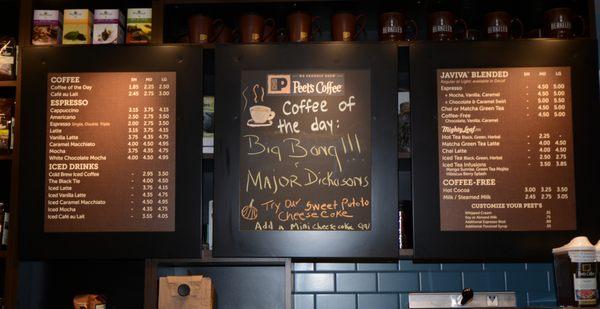 COFFEE SM MD LG
Coffee of the Day 1.85 2.25 2.50
Café au Lait 2.45 2.75 3.00
ESPRESSO
Cappuccino 3.15 3.75 4.15
Americano 2.50 2.75 3.00
Espresso Single, Double, Triple 2.00
Latte 3.15 3.75 4.15
Vanilla Latte 3.75 4.35 4.75
Caramel Macchiato 4.00 4.50 4.95
Mocha 3.75 4.35 4.75
White Chocolate Mocha 4.00 4.50 4.95
ICED DRINKS
Cold Brew Iced Coffee - 2.95 3.50
The Black Tie - 4.00 4.50
Iced Latte - 3.75 4.15
Iced Vanilla Latte - 4.35 4.75
Iced Caramel Macchiato - 4.50 4.95
Iced Mocha - 4.35 4.75
Iced Café au Lait - 3.55 4.05
WE PROUDLY BREW
Peet's Coffee
Coffee of
the day:
Big Bang!!!
Major Dickasons
Try our Sweet Potato
Cheesecake
Add a Mini Cheesecake
JAVIVA BLENDED SM MD LG
Espresso
• Mocha, Vanilla, Caramel - 4.50 5.00
• Chocolate & Caramel Swirl - 5.00 5.50
Chai or Matcha Green Tea - 4.50 5.00
Coffee-Free - 4.50 5.00
Chocolate, Vanilla, Caramel
Mighty Leaf
Hot Tea Black, Green, Herbal - 2.25 -
Matcha Green Tea Latte - 4.00 4.50
Chai Latte - 4.00 4.50
Iced Tea Black, Green, Herbal - 2.50 2.75
Iced Tea Infusions - 3.50 3.85
Mango Sunrise, Green Tea Mojito
Hibiscus Berry Splash
COFFEE-FREE
Hot Cocoa 3.00 3.25 3.50
Milk / Steamed Milk 2.45 2.75 3.05
CUSTOMIZE YOUR PEET'S
Whipped Cream
Soy or Almond Milk
Additional Espresso Shot
Additional Flavored Syrup
BERKELEY